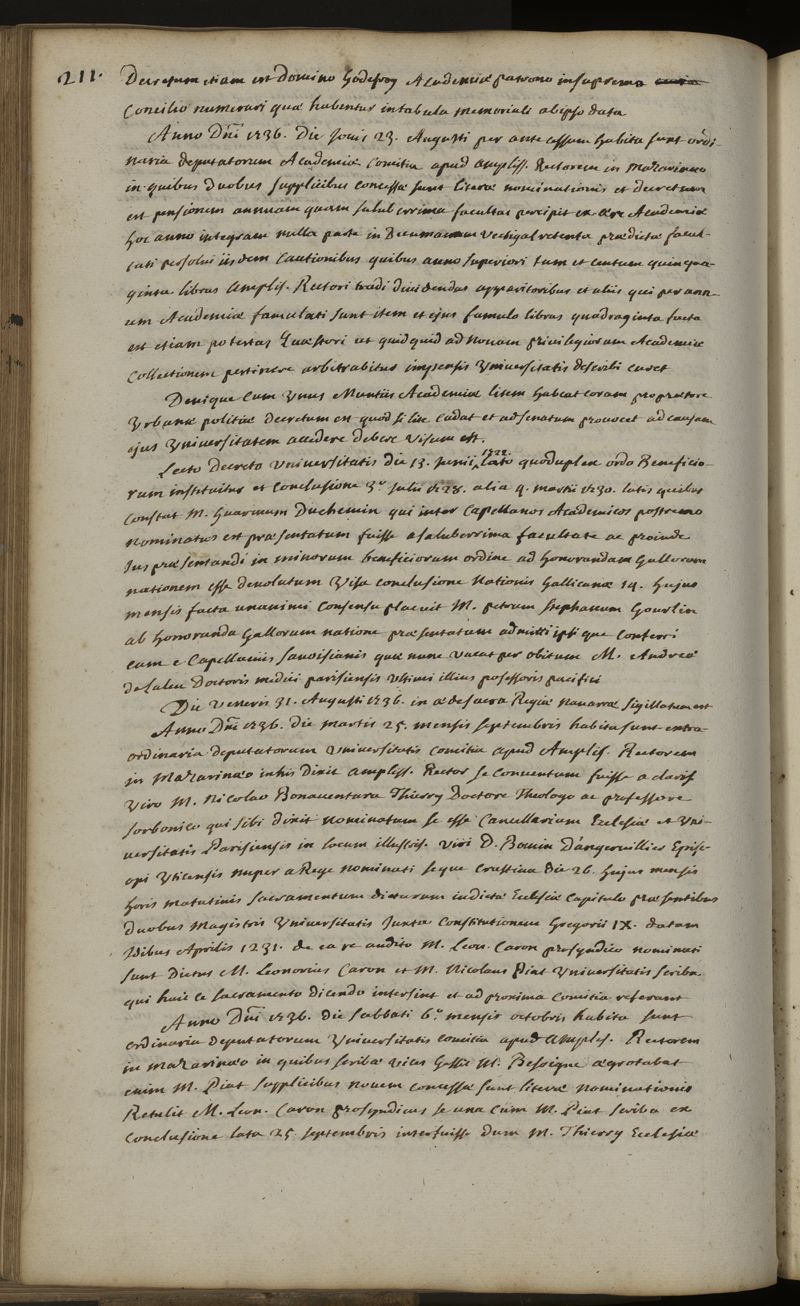 211. Decretum etiam est Domino Godefroy Academiæ patrono in suprema curia
Concilio numerari quæ habentur in tabula memoriali ab ipso data
Anno Dni 1736. Die Jovis 23. Augusti per ante cessum habita sunt ordi-
naria deputatorum Academiæ Comitia apud ampliss. Rectorem in Mazarinæo
in quibus duobus supplicibus concessæ sunt literæ nominationis et decretum
est pensionem annuam quam saluberrima facultas percipit ex ære Academiæ
hoc anno integram nulla parte in vectigal retenta prædictæ facul-
tati persolvi iisdem Cautionibus quibus anno superiori tum et centum quinqua-
ginta libras Ampliss. Rectori tradi dividendas apparitoribus et aliis qui per ann-
um Academiæ famulati sunt item et ejus famulo libras quadraginta facta
est etiam potestas Quæstori ut quidquid ad novam privilegiorum Academiæ
Collectionem pertinere arbitrabitur impensis Universitatis describi curet
Denique Cum Unus Nuntiis Academiæ litem habeat coram proprætore
Urbanæ politiæ decretum est quod si lite cadat et ad senatum provocet ad causam
ejus Universitatem accedere debere visum est.
Lecto Decreto Universitatis die 13. Junii 1722. lato quo duplex ordo Beneficio-
rum instituitur et Conclusione 3ª Julii 1728. alia 9. martii 1730. latis quibus
Constat M. Guarinum Duchemin qui inter Capellanos Academicos postremo
nominatus est præsentatum fuisse a saluberrima facultate ac proinde
Jus præsentandi in minorum beneficiorum ordine ad honorandam Gallorum
nationem esse devolutum Visa conclusione Nationis Gallicanæ 14. hujus
mensis facta unanimi Consensu placuit M. petrum stephanum Gourlin
ab honoranda Gallorum natione præsentatum admitti ipsique Conferri
eam e Capellaniis Savoisianis quæ nunc vacat per obitum M. Andreæ
de Laleu Doctoris medici parisiensis ultimi illius possessoris pacifici
Die Veneris 31. Augusti 1736. in æde sacra Regiæ Navarræ sigillatum est
Anno Dni 1736. die martis 25. mensis septembris habita sunt extra-
ordinaria deputatorum Universitatis comitia apud Ampliss. Rectorem
in Mazarinæo in his dixit ampliss. Rector se conventum fuisse a clariss
Viro M. Nicolao Bonaventura Thierry Doctore Theologo ac professore
sorbonico qui sibi dixit nominatum se esse Cancellarium Ecclesiæ et Uni-
versitatis Parisiensis in locum illustriss. viri D. Bouin D'angervilliers Episc-
opi Uticensis nuper a Rege nominati seque Crastina die 26. hujus mensis
horis matutinis sacramentum dicturum in dictæ Ecclesiæ Capitulo præsentibus
duobus Magistris Universitatis Juxta Constitutionem Gregorii IX. datam
Idibus Aprilis 1231. de ea re audito M. Leon. Caron prosyndico nominati
sunt Dictus M. Leonorius Caron et M. Nicolaus Piat Universitatis scriba
qui huic ce sacramento dicendo intersint et ad proxima Comitia referant
Anno Dni 1736. die sabbati 6ª mensis octobris habita sunt
ordinaria deputatorum Universitatis comitia apud ampliss. Rectorem
in mazarinæo in quibus scribæ vices Gessit M. Besoigne ægrotabat
enim M. Piat supplicibus novem concessæ sunt literæ nominationis
Retulit M. Leon. Caron prosyndicus se una Cum M. Piat scriba ex
conclusione lata 25. septembris interfuisse dum M. Thierry Ecclesiæ